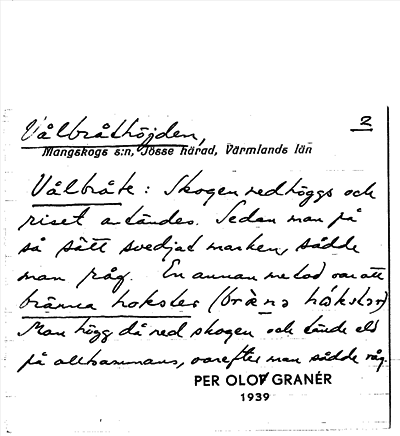 Vålbråthöjden, 2
Mangskogs s:n, Jösse härad, Värmlands län
Vålbråte: Skogen nedhöggs och
riset antändes. Sedan man på
så sätt svedjat marken, sådde
man råg. En annan metod var att
bränna hokster (bræ̀nə hókstər)
Man högg då ned skogen och tände eld
på alltsammans, varefter man sådde råg.
PER OLOF GRANÉR
1939